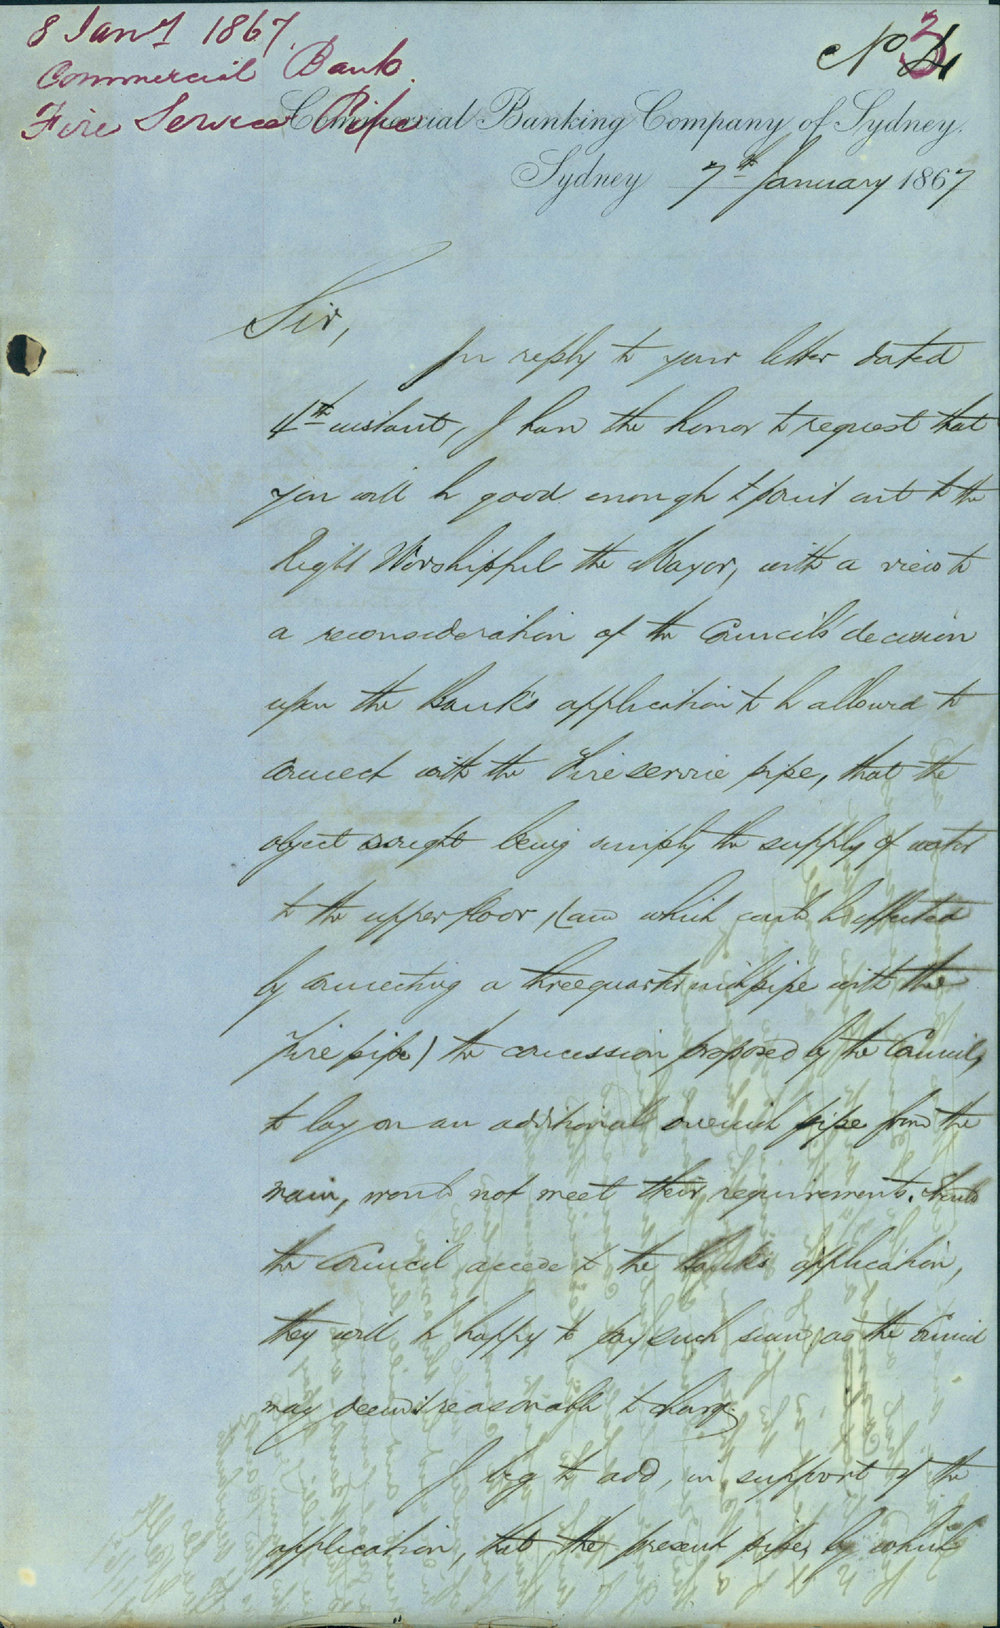 8 Jany 1867.
Commercial Bank.
Fire Service Pipe
No 3
Commercial Banking Company of Sydney.
Sydney 7th January 1867
Sir,
In reply to your letter dated
4th instant, I have the honor to request that
you will be good enough to point out to the
Right Worshipful the Mayor, with a view to
a reconsideration of the Council's decision
upon the Bank's application to be allowed to
connect with the Fire service pipe, that the
object sought being simply the supply of water
to the upper floor, (and which can be effected
by connecting a threequarter inch pipe with the
Fire pipe) the concession proposed by the Council,
to lay on an additional one inch pipe from the
main, would not meet their requirements. Should
the Council accede to the Bank's application,
they will be happy to pay such sum as the Council
may deem it reasonable to charge.
I beg to add, in support of the
application, that the present pipe, by which